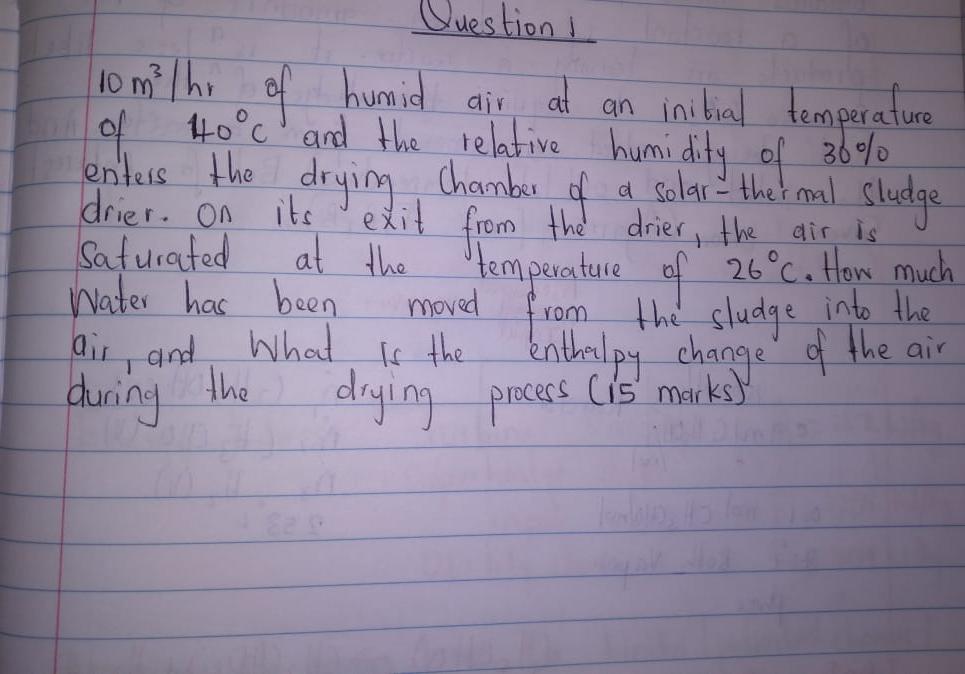 Question 1
10 m³/hr of humid air at an initial temperature
of 40°C and the relative humidity of 30%
enters the drying Chamber of a solar-thermal sludge
drier. On its exit from the drier, the air is
Saturated at the temperature of 26°C. How much
Water has been moved from the sludge into the
air, and What is the enthalpy change of the air
during the drying process (15 marks)